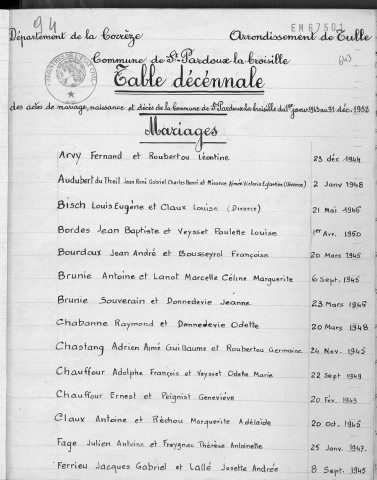 94
EM 67501
Département de la Corrèze Arrondissement de Tulle
Commune de St Pardoux-la-Croisille
Table décénnale
des actes de mariage, naissance et décès de la Commune de St Pardoux-la-Croisille du 1er janvr 1943 au 31 déc. 1952
Mariages
Arvy Fernand et Roubertou Léontine 23 déc 1944
Audubert du Theil Jean René Gabriel Charles Henri et Aimée Victoria Eglantine (Divorce) 2 Janv 1948
Bisch Louis Eugène et Claux Louise (Divorce) 21 Mai 1946
Bordes Jean Baptiste et Veysset Paulette Louise 1er Avr. 1950
Bourdoux Jean André et Bousseyrol Françoise 20 Mars 1945
Brunie Antoine et Lanot Marcelle Céline Marguerite 6 Sept. 1945
Brunie Souverain et Donnedevie Jeanne 23 Mars 1946
Chabanne Raymond et Donnedevie Odette 20 Mars 1948
Chastang Adrien Aimé Guillaume et Roubertou Germaine 24 Nov. 1945
Chauffour Adolphe François et Veysset Odette Marie 22 Sept 1949
Chauffour Ernest et Peignist Geneviève 20 Fév. 1943
Claux Antoine et Réchou Marguerite Adélaïde 20 Oct. 1945
Fage Julien Antoine et Freygnac Thérèse Antoinette 25 Janv. 1947.
Ferrieu Jacques Gabriel et Lallé Josette Andrée 8 Sept. 1945